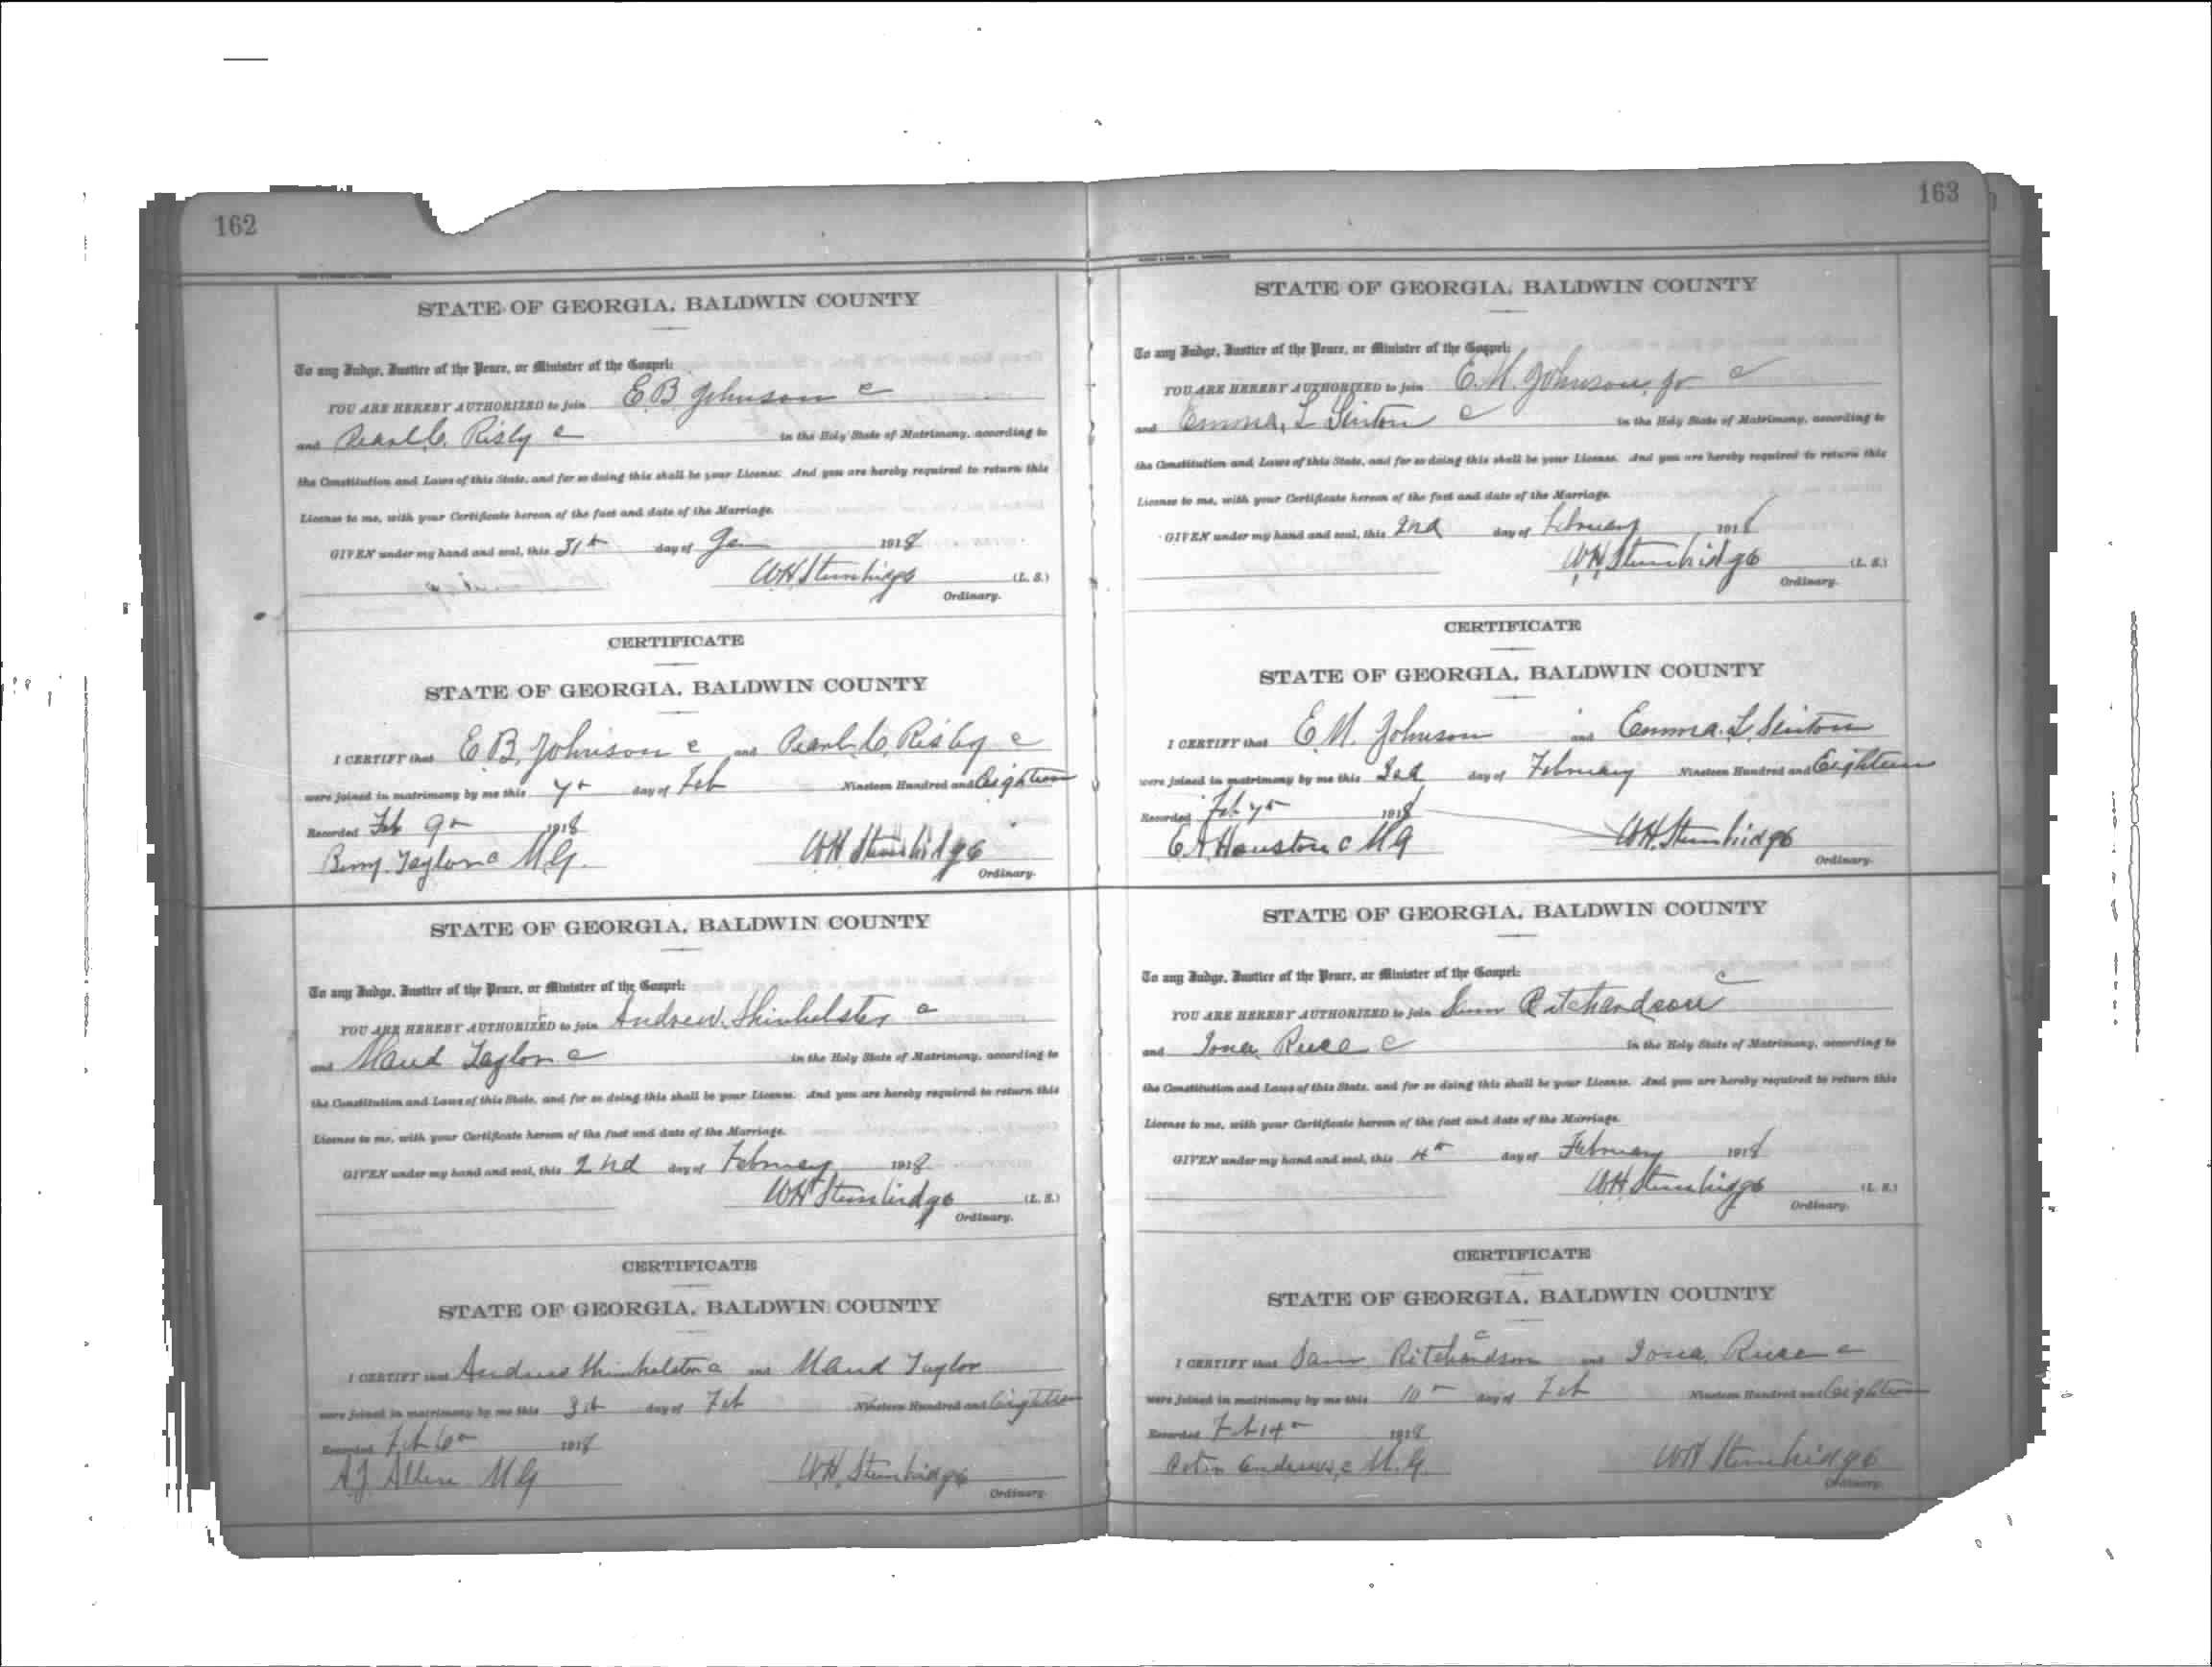 162
STATE OF GEORGIA, BALDWIN COUNTY
To any Judge, Justice of the Peace, or Minister of the Gospel:
YOU ARE HEREBY AUTHORIZED to join E B Johnson c
and Pearl C. Risby c in the Holy State of Matrimony, according to
the Constitution and Laws of this State, and for so doing this shall be your License. And you are hereby required to return this
License to me, with your Certificate hereon of the fact and date of the Marriage.
GIVEN under my hand and seal, this 31st day of Jan 1918
WH Stembridge (L. S.)
Ordinary.
CERTIFICATE
STATE OF GEORGIA, BALDWIN COUNTY
I CERTIFY that E B. Johnson c and Pearl C. Risby c
were joined in matrimony by me this 7th day of Feb Nineteen Hundred and Eighteen
Recorded Feb 9th 1918
Benj. Taylor c M.G. WH Stembridge
Ordinary.
STATE OF GEORGIA, BALDWIN COUNTY
To any Judge, Justice of the Peace, or Minister of the Gospel:
YOU ARE HEREBY AUTHORIZED to join Andrew c
and Maud Taylor c in the Holy State of Matrimony, according to
the Constitution and Laws of this State, and for so doing this shall be your License. And you are hereby required to return this
License to me, with your Certificate hereon of the fact and date of the Marriage.
GIVEN under my hand and seal, this 2nd day of February 1918
WH Stembridge (L. S.)
Ordinary.
CERTIFICATE
STATE OF GEORGIA, BALDWIN COUNTY
I CERTIFY that Andrew c and Maud Taylor
were joined in matrimony by me this day of Feb Nineteen Hundred and Eighteen
Recorded Feb 6th 1918
A.J. Allen M G W.H. Stembridge
Ordinary.
163
STATE OF GEORGIA, BALDWIN COUNTY
To any Judge, Justice of the Peace, or Minister of the Gospel:
YOU ARE HEREBY AUTHORIZED to join E. M. Johnson, Jr c
and Emma, L c in the Holy State of Matrimony, according to
the Constitution and Laws of this State, and for so doing this shall be your License. And you are hereby required to return this
License to me, with your Certificate hereon of the fact and date of the Marriage.
GIVEN under my hand and seal, this 2nd day of February 1918
W.H. Stembridge (L. S.)
Ordinary.
CERTIFICATE
STATE OF GEORGIA, BALDWIN COUNTY
I CERTIFY that E. M. Johnson and Emma. L.
were joined in matrimony by me this 3rd day of February Nineteen Hundred and Eighteen
Recorded Feb 7th 1918
E. A Houston c M G WH. Stembridge
Ordinary.
STATE OF GEORGIA, BALDWIN COUNTY
To any Judge, Justice of the Peace, or Minister of the Gospel:
YOU ARE HEREBY AUTHORIZED to join Sam Ritchardson c
and Iona c in the Holy State of Matrimony, according to
the Constitution and Laws of this State, and for so doing this shall be your License. And you are hereby required to return this
License to me, with your Certificate hereon of the fact and date of the Marriage.
GIVEN under my hand and seal, this 4th day of February 1918
WH. Stembridge (L. S.)
Ordinary.
CERTIFICATE
STATE OF GEORGIA, BALDWIN COUNTY
I CERTIFY that Sam Ritchardson c and Iona c
were joined in matrimony by me this 10th day of Feb Nineteen Hundred and Eighteen
Recorded Feb 14th 1918
Andrews, c M.G. WH Stembridge
Ordinary.